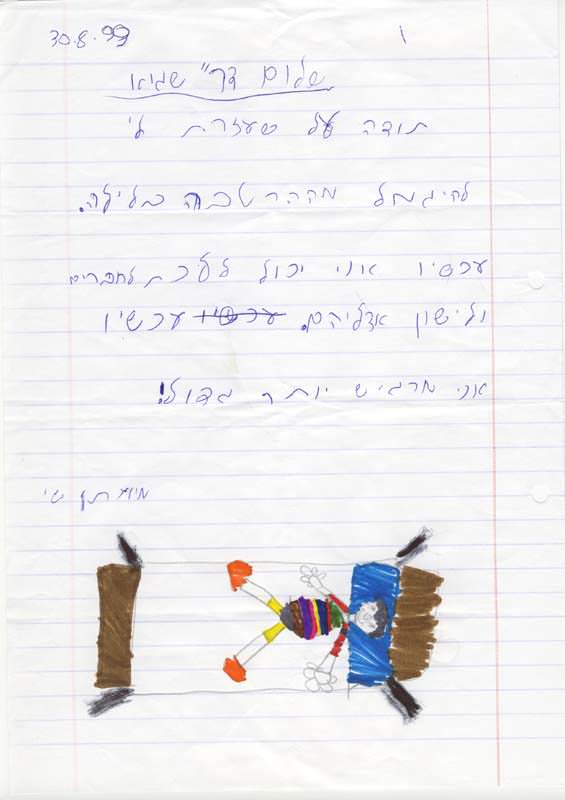 30.8.99
1
שלום דר" שגיאו
תודה על שעזרת לי
להיגמל מההרטבה בלילה.
עכסיו אני יכול ללכת לחברים
ולישון אצליהם. עכסיו עכשיו
אני מרגיש יותר גדול!